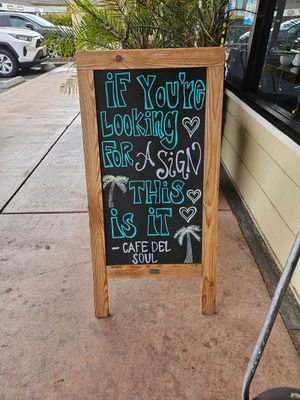 iF YOU'RE
LOOKING
FOR A SIGN
THIS
IS IT
- CAFE DEL
SOUL